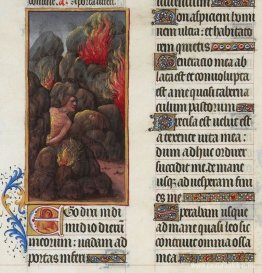 go dixi in di
midio dierū
meorum: uadam ad
portas inferi
non aspiciam homi
nem ultra: et habitato
rem quietis
Generatio mea ab
lata est et conuoluta
est a me quasi taberna
culum pastorum
Precisa est uelut
a texente uita mea:
dum adhuc ordirer
succidit me de mane
usq; ad uesperam finies
me
Sperabam usque
ad mane quasi leo sic
contriuit omnia ossa
mea